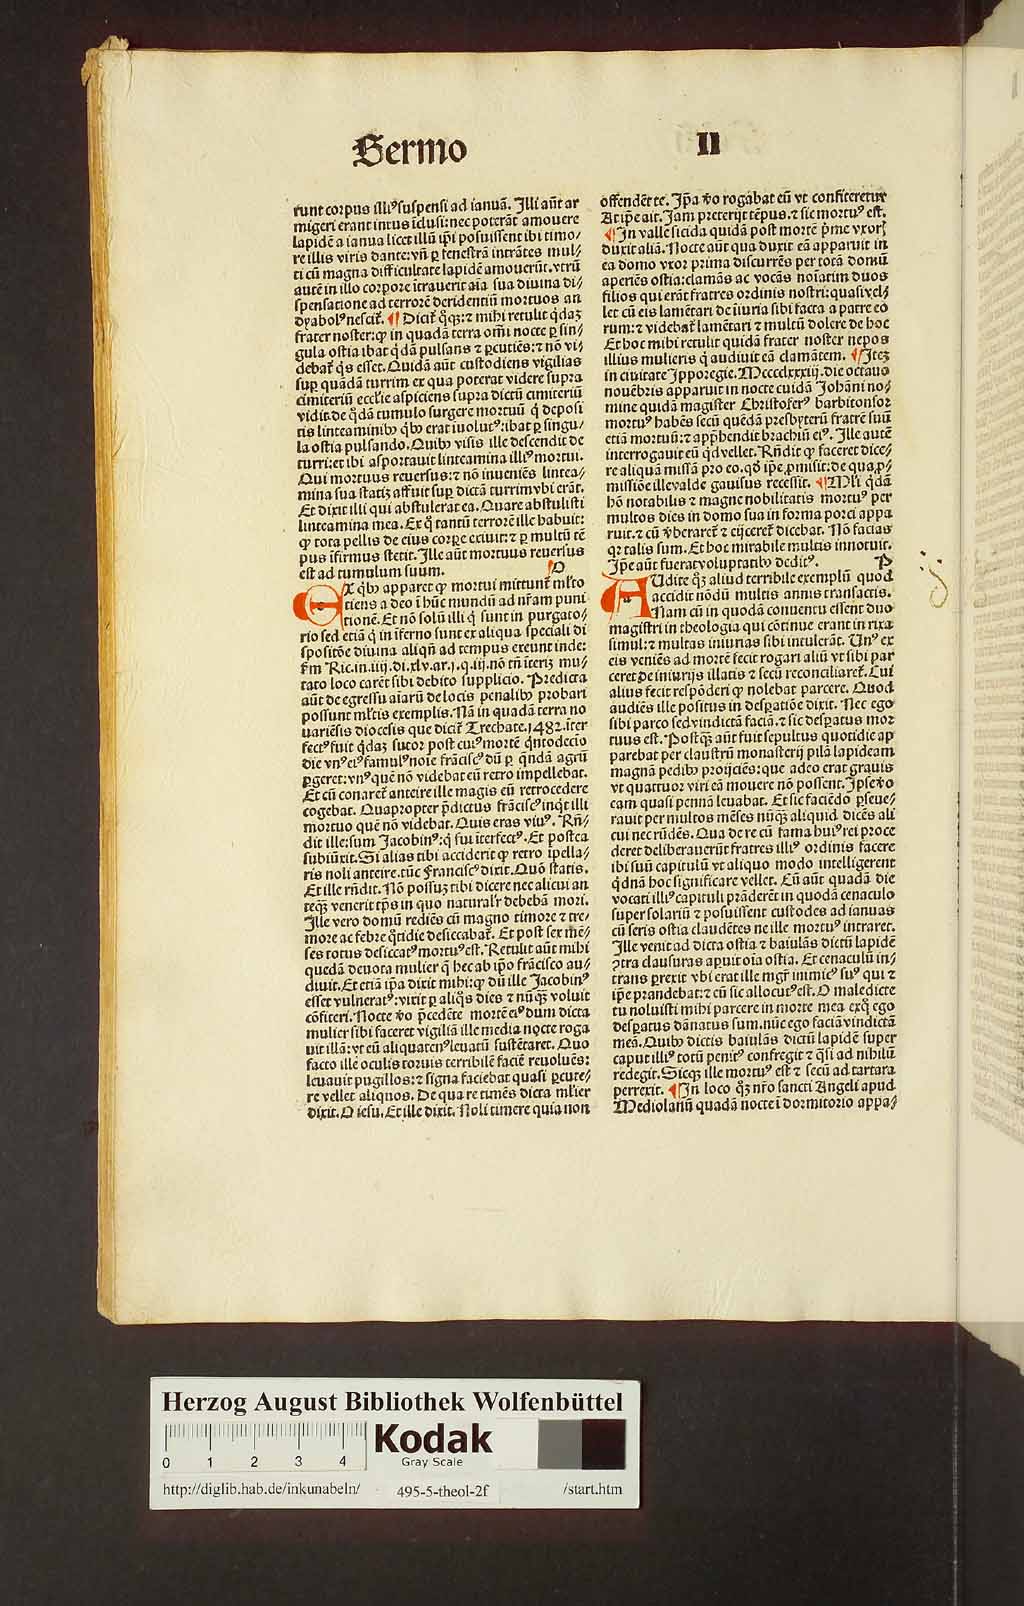 Sermo
II
runt corpus illiꝰ suspensi ad ianuā. Illi aūt ar
migeri erant intus iclusi: nec poterāt amouere
lapidē a ianua licet illū ip̄i posuissent ibi timo/
re illis viris dante: vn̄ ꝑ fenestrā intrātes mul/
ti cū magna difficultate lapidē amouerūt. vtrū
autē in illo corpore itrauerit aīa sua diuina di/
spensatione ad terrorē deridentiū mortuos an
dyabolꝰ nescit᷑. ¶ Dicit᷑ q̄ꝫ: ⁊ mihi retulit q̄daꝫ
frater noster: ꝙ in quadā terra om̄i nocte ꝑ sin/
gula ostia ibat q̄dā pulsans ⁊ ꝑcutiēs: ⁊ nō vi/
debat᷑ q̄s esset. Quidā aūt custodiens vigilias
suꝑ quādā turrim ex qua poterat videre supra
cimiteriū eccl̄ie aspiciens supra dictū cimiteriū
vidit. de q̄dā tumulo surgere mortuū q̄ deposi
tis linteaminibꝰ q̄bꝰ erat iuolutꝰ: ibat ꝑ singu/
la ostia pulsando. Quibꝰ visis ille descendit de
turri: et ibi asportauit linteamina illiꝰ mortui.
Qui mortuus reuersus: ⁊ nō inueniēs lintea/
mina sua statiꝫ affuit suꝑ dictā turrim vbi erāt.
Et dixit illi qui abstulerat ea. Quare abstulisti
linteamina mea. Ex q̄ tantū terrorē ille habuit:
ꝙ tota pellis de eius corꝑe exiuit: ⁊ ꝑ multū tē
pus ifirmus stetit. Ille aūt mortuus reuersus
est ad tumulum suum. O
EX q̄bꝰ apparet ꝙ mortui mittunt᷑ ml̄to
tiens a deo i hūc mundū ad nr̄am puni
tionē. Et nō solū illi q̄ sunt in purgato/
rio sed etiā q̄ in iferno sunt ex aliqua speciali di
spositōe diuina aliqn̄ ad tempus exeunt inde:
ẜm Ric. in .iiij. di. xlv. ar. j. q. iij. nō tn̄ iteriꝫ mu/
tato loco carēt sibi debito supplicio. Predicta
aūt de egressu aīarū de locis penalibꝰ probari
possunt ml̄tis exemplis. Nā in quadā terra no
uariēsis diocesis que dicit᷑ Trechate. 1482. iter
fectꝰ fuit q̄daꝫ sutor post cuiꝰ mortē q̄ntodecio
die vnꝰ eiꝰ famulꝰ noīe frāciscꝰ dū ꝑ q̄ndā agrū
ꝑgeret: vnꝰ quē nō videbat eū retro impellebat.
Et cū conaret᷑ anteire ille magis eū retrocedere
cogebat. Quapropter p̄dictus frāciscꝰ inq̇t illi
mortuo quē nō videbat. Quis eras viuꝰ. Rn̄/
dit ille: sum Jacobinꝰ: q̄ fui iterfectꝰ. Et postea
subiūxit. Si alias tibi acciderit ꝙ retro ipella/
ris noli anteire. tūc Franciscꝰ dixit. Quō statis.
Et ille rn̄dit. Nō possuꝫ tibi dicere nec alicui an
teqꝫ̄ venerit tp̄s in quo natural᷑r debebā mori.
Ille vero domū rediēs cū magno timore ⁊ tre/
more ac febre q̄tidie desiccabat᷑. Et post sex mē/
ses totus desiccatꝰ mortuꝰ est. Retulit aūt mihi
quedā deuota mulier q̄ hec ab ip̄o frācisco au/
diuit. Et etiā ip̄a dixit mihi: ꝙ dū ille Jacobinꝰ
esset vulneratꝰ: vixit ꝑ aliq̄s dies ⁊ nūqꝫ̄ voluit
cōfiteri. Nocte v̄o p̄cedēte mortē eiꝰ dum dicta
mulier sibi faceret vigiliā ille media nocte roga
uit illā: vt eū aliquatenꝰ leuatū sustētaret. Quo
facto ille oculis toruis terribilē faciē reuoluēs:
leuauit pugillos: ⁊ signa faciebat quasi ꝑcute/
re vellet aliquos. De qua re timēs dicta ml̄ier
dixit. O iesu. Et ille dixit. Noli timere quia non
offendēt te. Ip̄a v̄o rogabat eū vt confiteretur
At ip̄e ait. Jam preterijt tēpus. ⁊ sic mortuꝰ est.
¶ In valle sicida quidā post mortē p̄me vxoris
duxit aliā. Nocte aūt qua duxit eā apparuit in
ea domo vxor prima discurrēs per totā domū
aperiēs ostia: clamās ac vocās noīatim duos
filios qui erāt fratres ordinis nostri: quasi vel/
let cū eis lamētari de iiuria sibi facta a patre eo
rum: ⁊ videbat᷑ lamētari ⁊ multū dolere de hoc
Et hoc mihi retulit quidā frater noster nepos
illius mulieris q̄ audiuit eā clamātem. ¶ Iteꝫ
in ciuitate Ipporegie. Mcccclxxxiij. die octauo
nouēbris apparuit in nocte cuidā Johāni no/
mine quidā magister Christoferꝰ barbitonsor
mortuꝰ habēs secū quēdā presbyterū fratrē suū
etiā mortuū: ⁊ app̄hendit brachiū eiꝰ. Ille autē
interrogauit eū q̄d vellet. Rn̄dit ꝙ faceret dice/
re aliquā missā pro eo. qd̄ ip̄e ꝓmisit: de qua ꝓ/
missiōe ille valde gauisus recessit. ¶ Ml̄i q̄dā
hō notabilis ⁊ magne nobilitatis mortuꝰ per
multos dies in domo sua in forma porci appa
ruit. ⁊ cū v̄beraret᷑ ⁊ eijceret᷑ dicebat. Nō facias
qꝛ talis sum. Et hoc mirabile multis innotuit.
Ip̄e aūt fuerat voluptatibꝰ deditꝰ. P
AUdite qꝫ̄ aliud terribile exemplū quod
accidit nōdū multis annis transactis.
Nam cū in quodā conuentu essent duo
magistri in theologia qui cōtinue erant in rixa
simul: ⁊ multas iniurias sibi intulerāt. Unꝰ ex
eis veniēs ad mortē fecit rogari aliū vt sibi par
ceret de iniurijs illatis ⁊ secū reconciliaret᷑. Cui
alius fecit respōderi ꝙ nolebat parcere. Quod
audiēs ille positus in desꝑatiōe dixit. Nec ego
sibi parco sed vindictā faciā. ⁊ sic desꝑatus mor
tuus est. Postqꝫ̄ aūt fuit sepultus quotidie ap
parebat per claustrū monasterij pilā lapideam
magnā pedibꝰ proijciēs: que adeo erat grauis
vt quattuor viri eā mouere nō possent. Ipse v̄o
eam quasi pennā leuabat. Et sic faciēdo ꝑseue/
rauit per multos mēses nūqꝫ̄ aliquid dicēs ali
cui nec rn̄dēs. Qua de re cū fama huiꝰ rei proce
deret deliberauerūt fratres illiꝰ ordinis facere
ibi suū capitulū vt aliquo modo intelligerent
q̄dnā hoc significare vellet. Cū aūt quadā die
vocati illiꝰ capituli prāderēt in quodā cenaculo
super solariū ⁊ posuissent custodes ad ianuas
cū seris ostia claudētes ne ille mortuꝰ intraret.
Ille venit ad dicta ostia ⁊ baiulās dictū lapidē
ꝯtra clausuras apuit oīa ostia. Et cenaculū in/
trans ꝑrexit vbi erat ille mgr̄ inimicꝰ suꝰ qui ⁊
ip̄e prandebat: ⁊ cū sic allocutꝰ est. O maledicte
tu noluisti mihi parcere in morte mea ex q̄ ego
desꝑatus dānatus sum. nūc ego faciā vindictā
meā. Quibꝰ dictis baiulās dictū lapidē super
caput illiꝰ totū penitꝰ confregit ⁊ q̄si ad nihilū
redegit. Sicqꝫ ille mortuꝰ est ⁊ secū ad tartara
perrexit. ¶ In loco qꝫ̄ nr̄o sancti Angeli apud
Mediolanū quadā nocte i dormitorio appa/
Herzog August Bibliothek Wolfenbüttel
0 1 2 3 4
Kodak
Gray Scale
http://diglib.hab.de/inkunabeln/ 495-5-theol-2f /start.htm